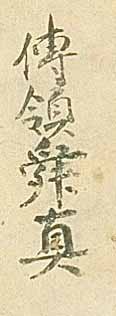 傳領舜真